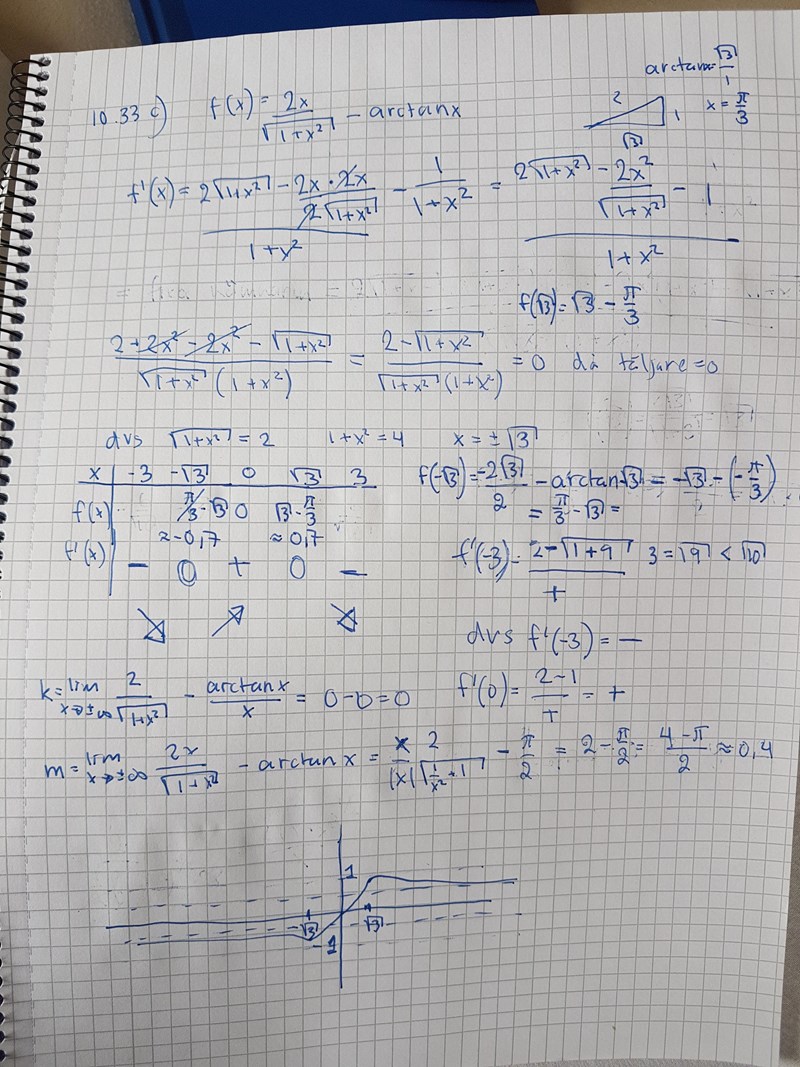 arctan x = √3/1
10.33 c) f(x) = 2x/√(1+x²) - arctanx
2 1 √3 x = π/3
f'(x) = (2√(1+x²) - 2x·2x/(2√(1+x²)))/(1+x²) - 1/(1+x²) = (2√(1+x²) - 2x²/√(1+x²) - 1)/(1+x²)
f(√3) = √3 - π/3
(2+2x²-2x²-√(1+x²))/(√(1+x²)(1+x²)) = (2-√(1+x²))/(√(1+x²)(1+x²)) = 0 då täljare = 0
dvs √(1+x²) = 2 1+x² = 4 x = ±√3
x -3 -√3 0 √3 3
f(-√3) = -2√3/2 - arctan-√3 = -√3 - (-π/3)
f(x) π/3-√3 0 √3-π/3
= π/3 - √3 =
≈-0,7 ≈0,7
f'(x) - 0 + 0 -
f'(-3) = (2-√(1+9))/+ 3 = √9 < √10
↘ ↗ ↘
dvs f'(-3) = -
k = lim x→±∞ 2/√(1+x²) - arctanx/x = 0-0 = 0
f'(0) = (2-1)/+ = +
m = lim x→±∞ 2x/√(1+x²) - arctan x = x 2/(|x|√(1/x²+1)) - π/2 = 2 - π/2 = (4-π)/2 ≈ 0,4
1
√3 √3
-1